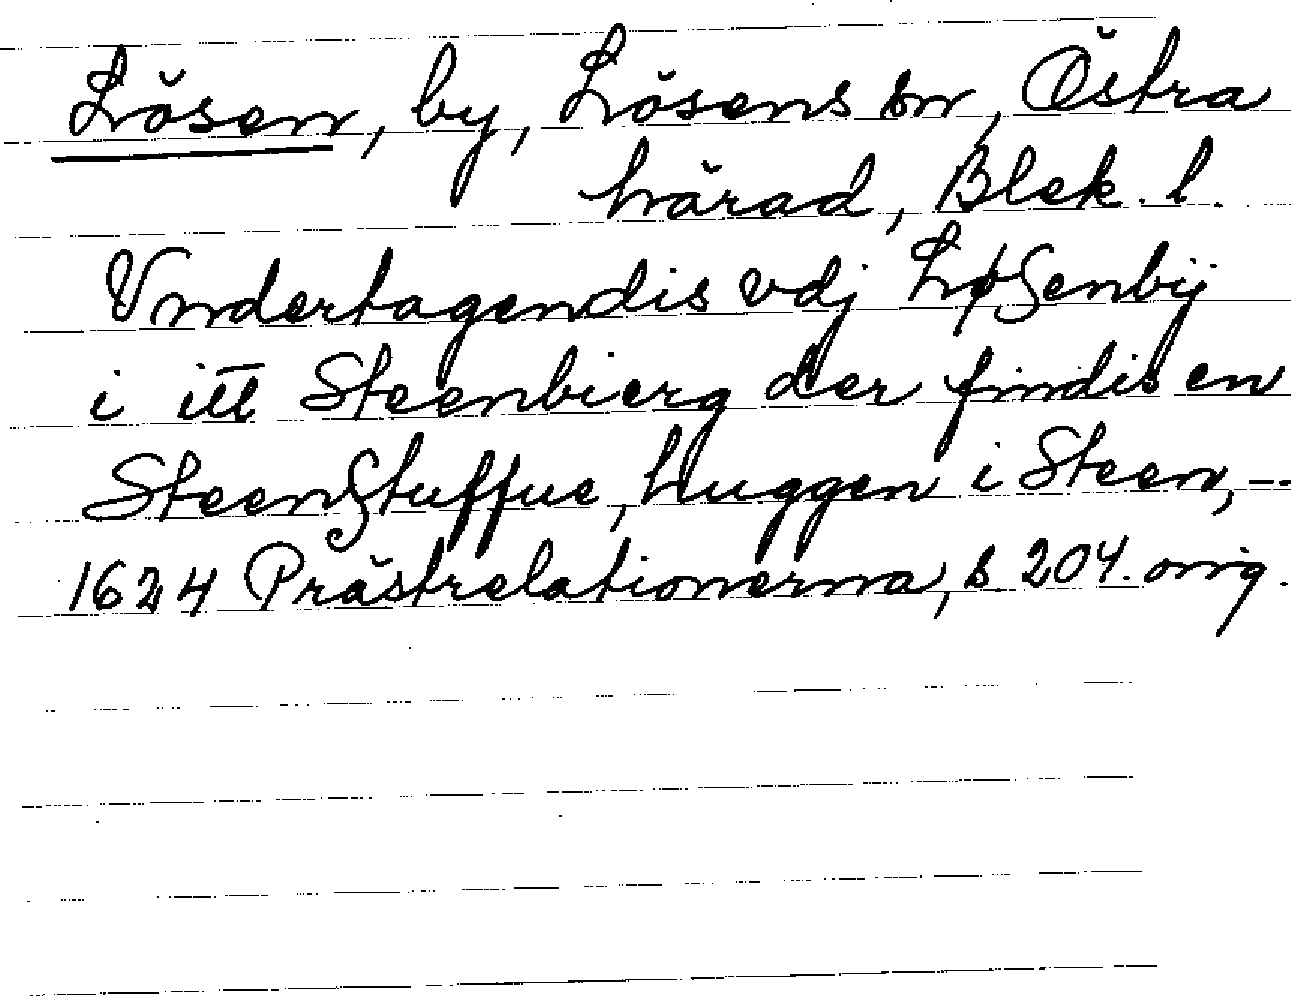 Lösen, by, Lösens sn, Östra
härad, Blek. l.
Vndertagendis vdj Løsenbÿ
i itt Steenbierg der findis en
Steenstuffue, huggen i Steen, --
1624 Prästrelationerna, s 204. orig.